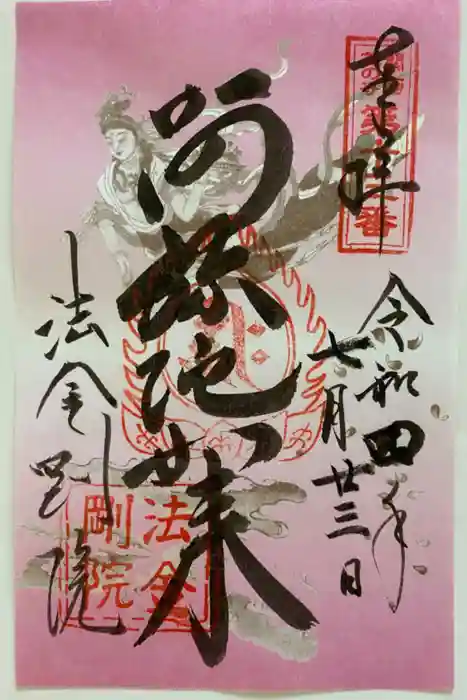 奉拝
第十三番
令和四年
七月廿三日
阿弥陀如来
法金剛院
法金
剛院